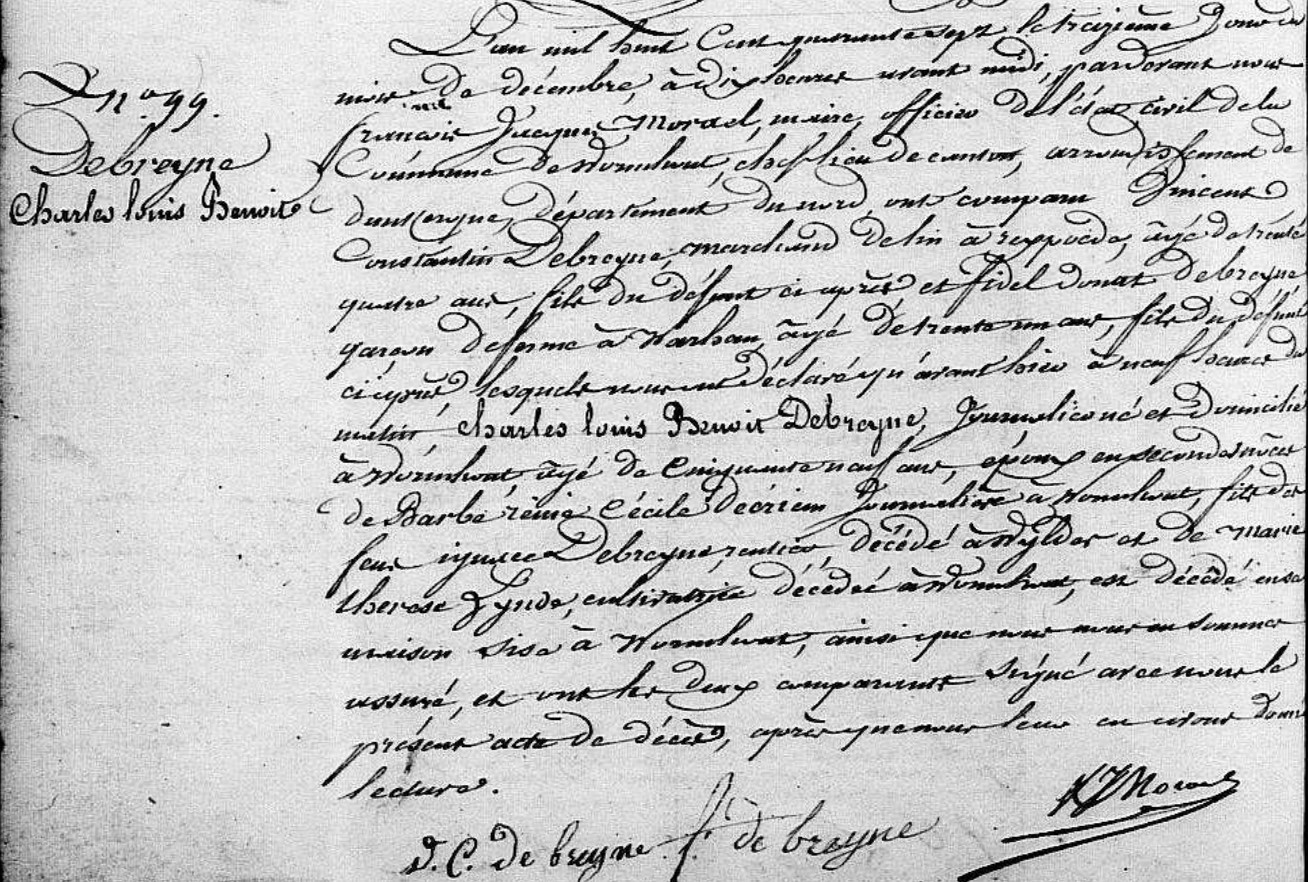 N° 99.
Debreyne
Charles louis Benoit
L'an mil huit Cent quarante sept le treizième Jour du
mois de décembre, à dix heures avant midi, pardevant nous
françois Jacques Morael, maire, officier de l'état civil de la
Commune de Wormhout, chef lieu de canton, arrondissement de
dunkerque, département du nord, ont comparu Vincent
Constantin Debreyne, marchand de lin à rexpoede, âgé de trente
quatre ans, fils du défunt ci après et fidel donat debreyne
garçon de ferme à Warhem, âgé de trente un ans, fils du défunt
ci après, lesquels nous ont déclaré qu'avant hier à neuf heures du
matin, Charles louis Benoit Debreyne, Journalier né et domicilié
à Wormhout âgé de Cinquante neuf ans, époux en secondes nôces
de Barbe Cécile Journalière à Wormhout, fils de
feu ignace Debreyne, rentier, décédé à Wylder et de marie
therese Lynde, cultivatrice décédée à Wormhout, est décédé en sa
maison sise à Wormhout, ainsi que nous nous en sommes
assuré, et ont les deux comparants signé avec nous le
présent acte de décès, après que nous leur en avons donné
lecture.
V. C. de breyne f. de breyne